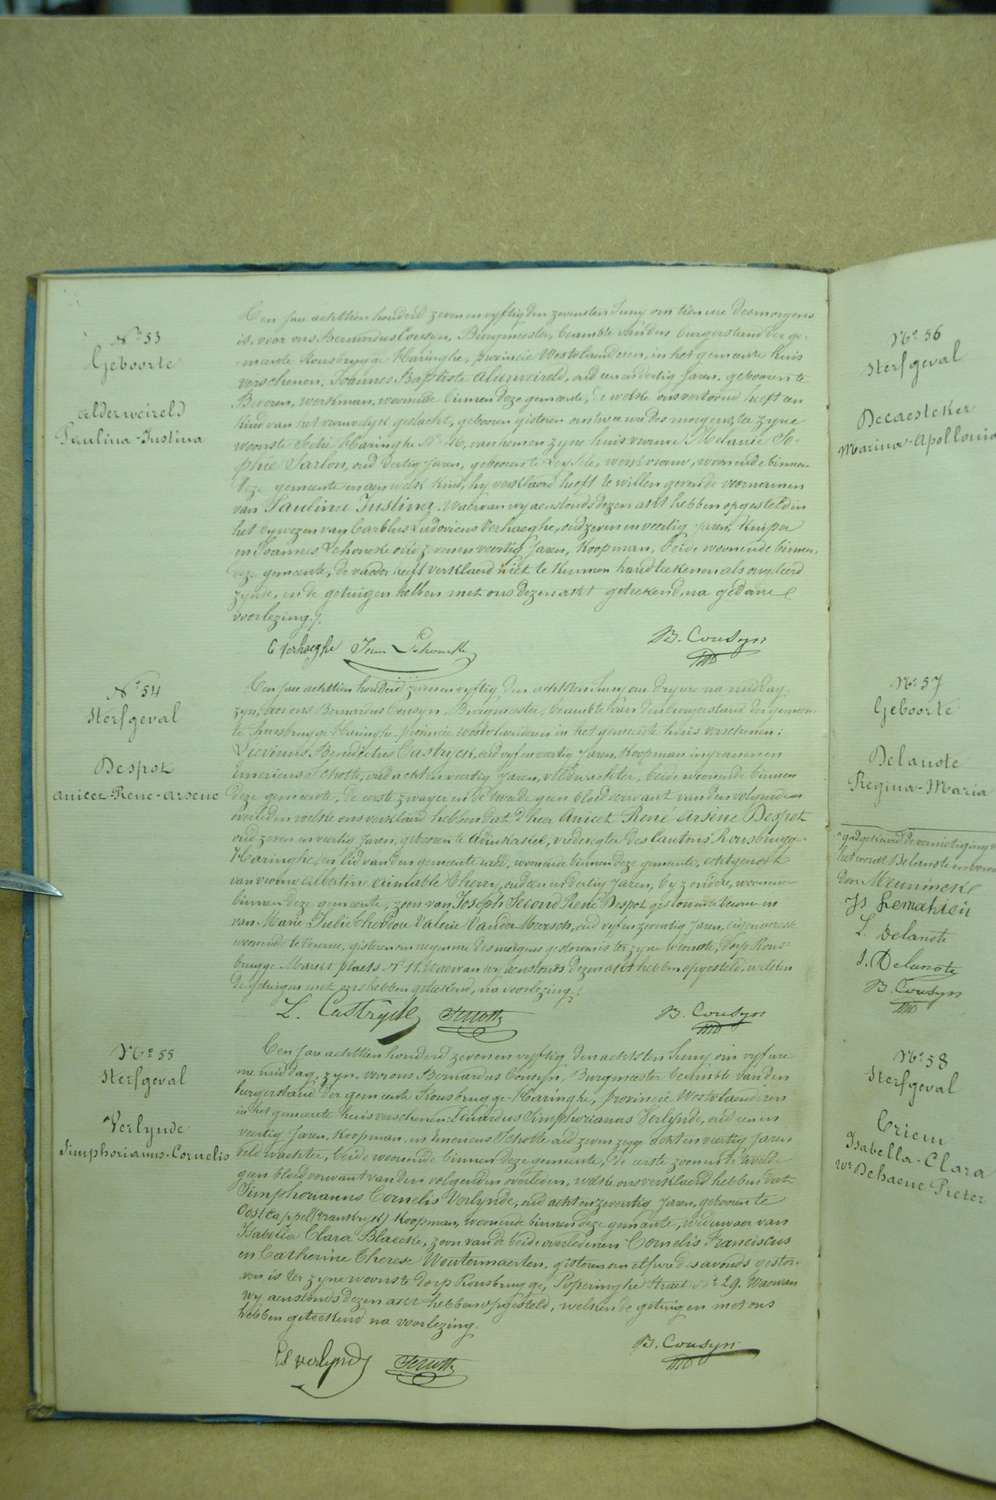 N.º 53
Geboorte
Alderweireld
Paulina-Justina
Een jare achttien honderd zeven en vyftig den zevensten Juny om tien ure des morgens
is, voor ons Bernardus Cousyn, Burgmeester, beambte van den burgerstand der ge-
meente Rousbrugge Haringhe, provincie Westvlaanderen, in het gemeente huis
verschenen, Joannes Baptiste Alderweireld, oud een en dertig Jaren, geboren te
Beveren, werkman, woonende binnen deze gemeente, de welke ons vertoond heeft een
kind van het vrouwelyk geslacht, geboren gisteren om twee ure des morgens, ter zyne
woonste Sectie Haringhe N.º 46, van hem en zyne huisvrouw Melanie So-
phie Sarlon, oud dertig Jaren, geboren te Leysele, werkvrouw, woonende binnen
deze gemeente en aen welk kind, hy verklaard heeft te willen geven de voornamen
van Paulina Justina. Waervan wy aenstonds dezen akt hebben opgesteld in
het bywezen van Carolus Ludovicus Verhaeghe, oud zeven en veertig Jaren, Kuiper
en Joannes Schowcke oud zeven en veertig Jaren, Koopman, beide woonende binnen
deze gemeente, de vader heeft verklaerd niet te kunnen handteekenen als ongeleerd
zynde, en de getuigen hebben met ons dezen akt geteekend, na gedane
voorlezing.
C Verhaeghe
B. Cousyn
N.º 54
Sterfgeval
Despot
Anicet-René-Arsène
Een jare achttien honderd zeven en vyftig den achtsten Juny om dry ure na middag,
zyn, voor ons Bernardus Cousyn, Burgmeester, beambte van den burgerstand der gemeen-
te Rousbrugge Haringhe, provincie Westvlaanderen in het gemeente huis verschenen:
Benedictus Castryck, oud vyf en veertig Jaren, Koopman in graenen en
Emericus Schotte, oud acht en veertig Jaren, veldwachter, beide woonende binnen
deze gemeente, de eerste zwager en de tweede geen bloedverwant van den volgenden
overleden welke ons verklaerd hebben dat d'heer Anicet René Arsène Despot
oud zeven en veertig Jaren, geboren te Adinkerke, vrederegter des cantons Rousbrugge-
Haringhe, en lid van den gemeente raed, woonende binnen deze gemeente, echtgenoot
van vrouwe Albertine Aimable Cherin, oud een en dertig Jaren, byzondere, woonende
binnen deze gemeente, zoon van Joseph Second René Despot gestorven te Veurne en
van Marie Julie Valerie Van der Meersch, oud vyf en zeventig Jaren, eigenaresse
woonende te Veurne, gisteren om negen ure des morgens gestorven is ter zyne woonste, dorp Rous-
brugge Markt plaets N.º 11. Waervan wy aenstonds dezen akt hebben opgesteld, welken
de getuigen met ons hebben geteekend, na voorlezing.
L. Castryck
B. Cousyn
N.º 55
Sterfgeval
Verlynde
Simphorianus-Cornelis
Een jare achttien honderd zeven en vyftig den achtsten Juny om vyf ure
na middag, zyn voor ons Bernardus Cousyn, Burgmeester beambte van den
burgerstand der gemeente Rousbrugge-Haringhe, provincie Westvlaanderen
in het gemeente huis verschenen: Eduardus Simphorianus Verlynde, oud een en
veertig Jaren, Koopman, en Emericus Schotte oud acht en veertig Jaren
veldwachter, beide woonende binnen deze gemeente, de eerste zoon en de tweede
geen bloedverwant van den volgenden overleden, welke ons verklaerd hebben dat
Simphorianus Cornelis Verlynde, oud acht en zeventig Jaren, geboren te
Oostcappel (Frankryk) Koopman, woonende binnen deze gemeente, weduwaer van
Isabella Clara Blaecke, zoon van de beide overledenen Cornelis Franciscus
en Catherine Therese Woutermaerten, gisteren om elf ure des avonds gestor-
ven is ter zyne woonste dorp Rousbrugge, Poperinghe Straet N.º 29. Waervan
wy aenstonds dezen akt hebben opgesteld, welken de getuigen met ons
hebben geteekend na voorlezing.
Ed Verlynde
B. Cousyn
N.º 56
Sterfgeval
Decaesteker
Marina-Apollonia
N.º 57
Geboorte
Delanote
Regina-Maria
Js Lemahieu
L. Delanote
J. Delanote
B. Cousyn
N.º 58
Sterfgeval
Criem
Isabella-Clara
we Dehaene Pieter